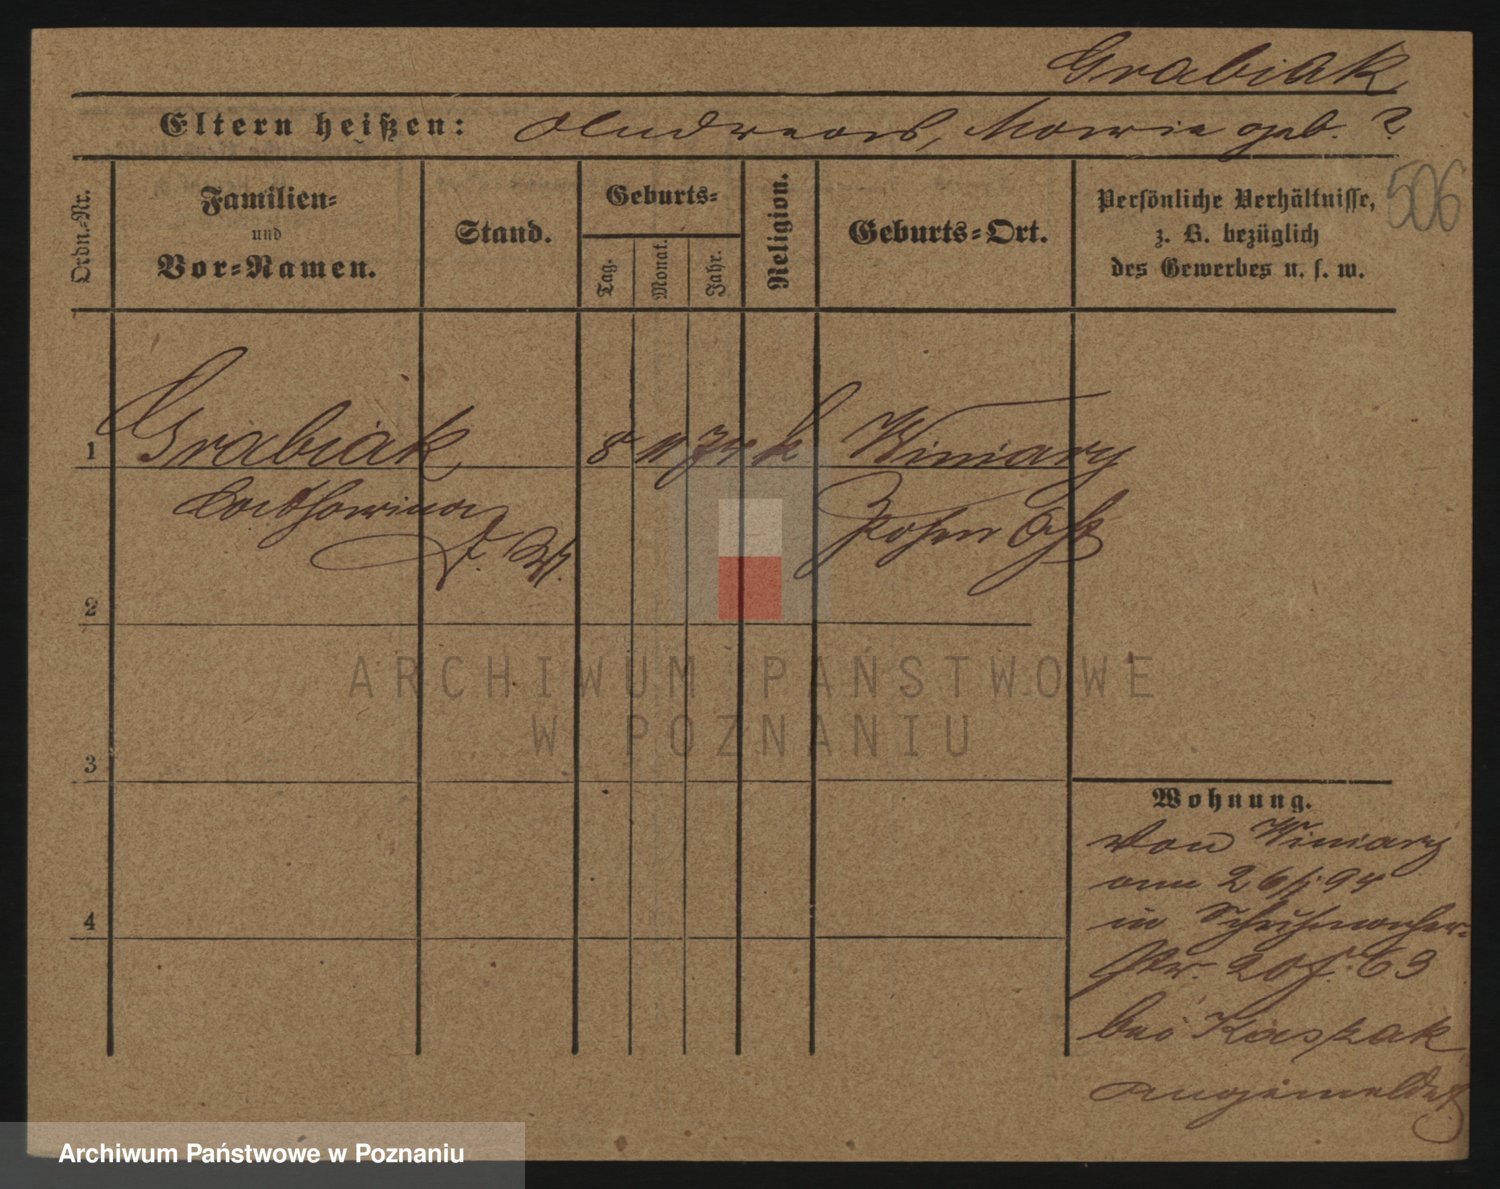 Grabiak
Eltern heißen: Andreas, Marie geb. ?
506
Ordn.-Nr.
Familien-
und
Vor-Namen.
Stand.
Geburts-
Tag.
Monat.
Jahr.
Religion.
Geburts-Ort.
Persönliche Verhältnisse,
z. B. bezüglich
des Gewerbes u. s. w.
1 Grabiak 8 11 74 k Winiary
Katharina Posen Ost
2
ARCHIWUM PAŃSTWOWE
W POZNANIU
3
4
Wohnung.
Von Winiary
am 26/ 94
in Schuhmacher-
str. 20 f. 63
bei Kaspzak
angemeldet
Archiwum Państwowe w Poznaniu